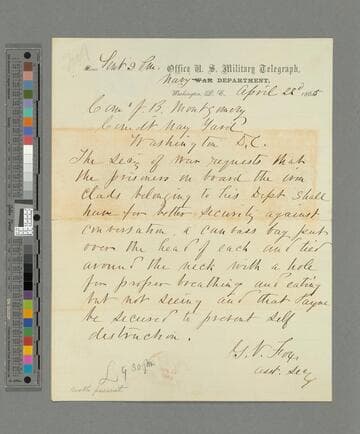 Sent 9 Pm. Office U. S. Military Telegraph,
Navy WAR DEPARTMENT,
Washington, D. C. April 22d 1865
Com' J. B. Montgomery
Comdt Navy Yard
Washington D.C.
The Secy of War requests that
the prisoners on board the iron
clads belonging to his Dept shall
have for better security against
conversation, a canvass bag put
over the head of each and tied
around the neck with a hole
for proper breathing and eating
but not seeing and that Payne
be secured to prevent self
distruction.
G. V. Fox
asst. Secy